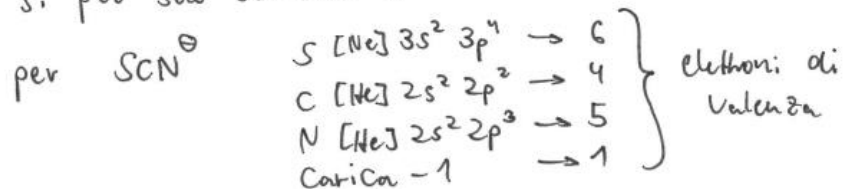 si può
per SCN⊖ S [Ne] 3s² 3p⁴ → 6
C [He] 2s² 2p² → 4
N [He] 2s² 2p³ → 5
Carica -1 → 1
elettroni di
valenza